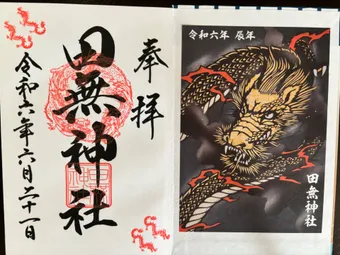 奉拝
田無神社
令和六年六月二十一日
令和六年 辰年
田無神社